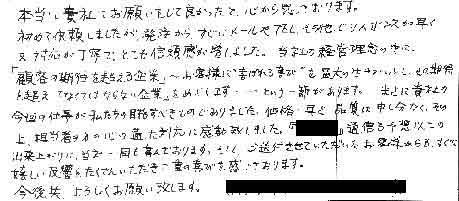 本当に貴社にお願いをして良かったと、心から思っております。
初めて依頼しましたが、発注からすぐにメールや TEL、その他レスポンスが早く
又対応が丁寧で、とても信頼感が増しました。当社の経営理念の中に、
「顧客の期待を超える企業」～お客様に喜ばれる事が を最大の とし、その期待
を超えてなくてはならない企業」をめざします…という一節があります。まさに貴社の
今回の仕事が私たちの目指すべきものでありました。価格・早さ・品質は申し分なく、その
上、担当者 の心の通った対応に感動致しました。「 」通信も予想以上の
出来上がりに、当社一同も喜んでおります。そして、ご送付させていただいたお客様からも、すぐに
嬉しい反響をたくさんいただき 重の喜びを感じております。
今後共、よろしくお願い致します。